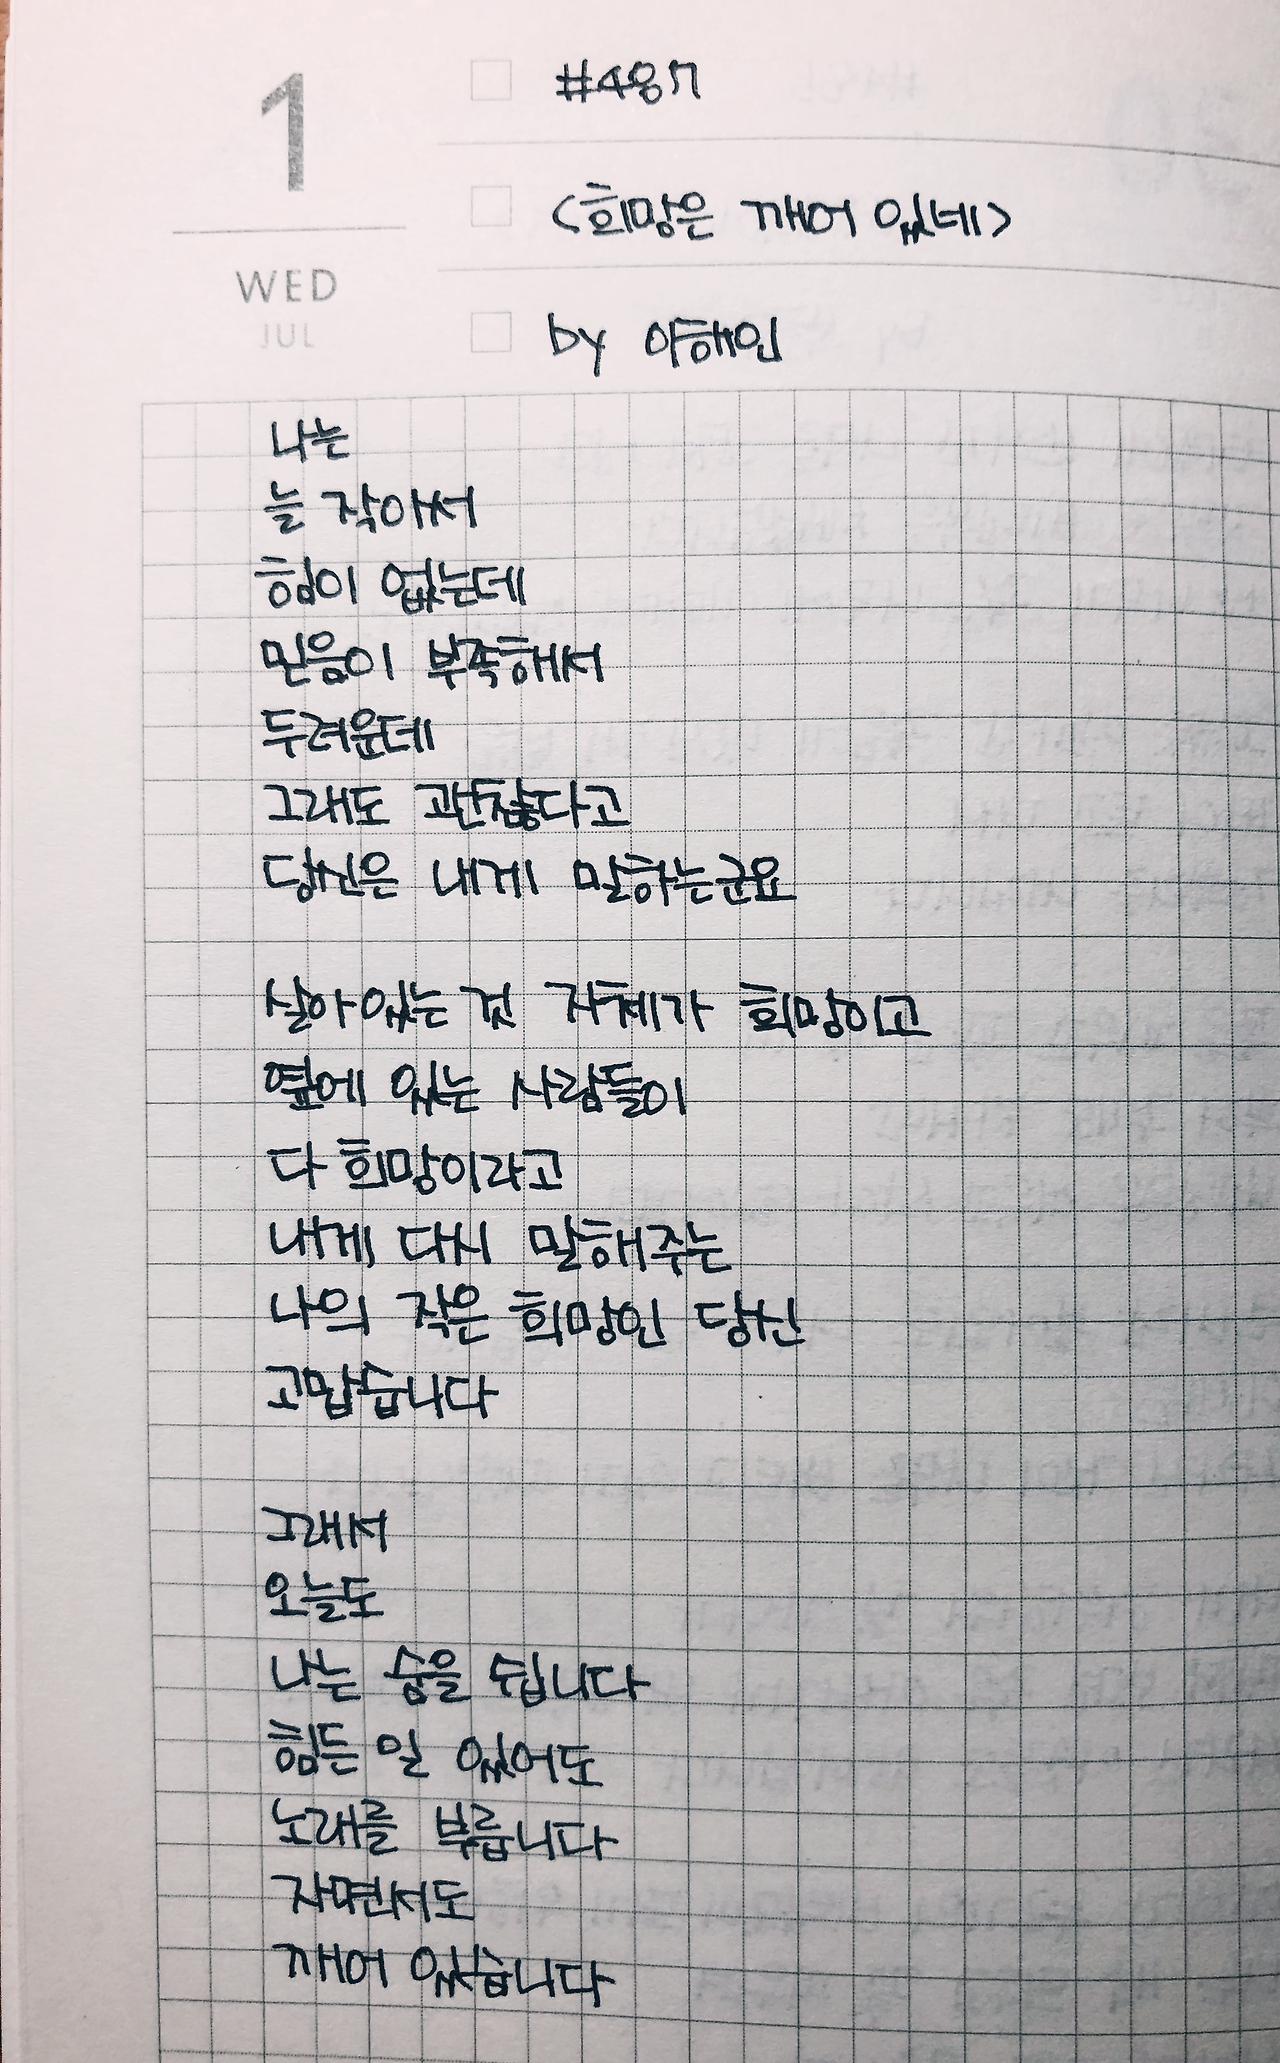 1
WED
JUL
#487
<희망은 깨어 있네>
by 이해인
나는
늘 작아서
힘이 없는데
믿음이 부족해서
두려운데
그래도 괜찮다고
당신은 내게 말하는군요
살아있는 것 자체가 희망이고
옆에 있는 사람들이
다 희망이라고
내게 다시 말해주는
나의 작은 희망인 당신
고맙습니다
그래서
오늘도
나는 숨을 쉽니다
힘든 일 있어도
노래를 부릅니다
자면서도
깨어 있습니다